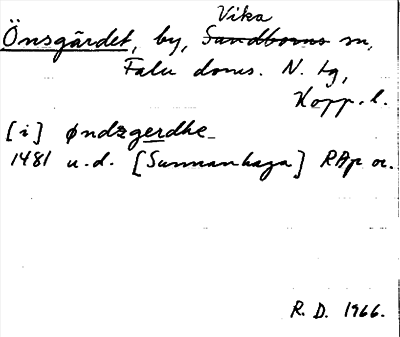 Vika
Önsgärdet, by, Sundborns sn,
Falu doms. N. tg,
Kopp. l.
[i] øndzgerdhe
1481 u.d. [Sunnanhaga] RAp or.
R. D. 1966.